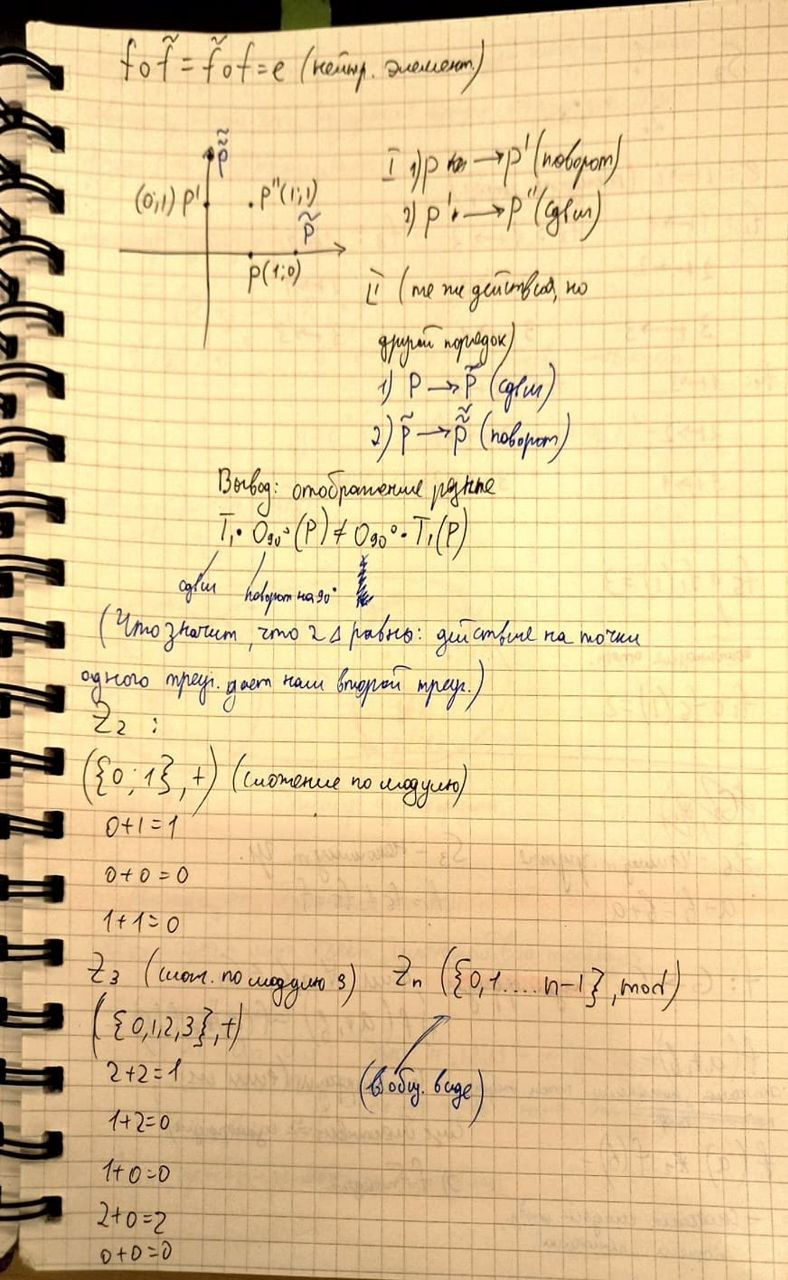 f∘f̃ = f̃∘f = e (нейтр. элемент.)
p̃̃
(0;1) p' p''(1;1)
p̃
p(1;0)
I 1) p → p' (поворот)
2) p' → p'' (сдвиг)
II (те же действия, но
другой порядок)
1) p → p̃ (сдвиг)
2) p̃ → p̃̃ (поворот)
Вывод: отображение разные
T₁∘O₉₀°(P) ≠ O₉₀°∘T₁(P)
сдвиг поворот на 90°
(Что значит, что 2 Δ равны: действие на точки
одного треуг. дает нам второй треуг.)
Z₂ :
({0;1},+) (сложение по модулю)
0+1=1
0+0=0
1+1=0
Z₃ (слож. по модулю 3) Zₙ ({0,1....n-1}, mod)
({0,1,2,3},+)
2+2=1
(в общ. виде)
1+2=0
1+0=0
2+0=2
0+0=0